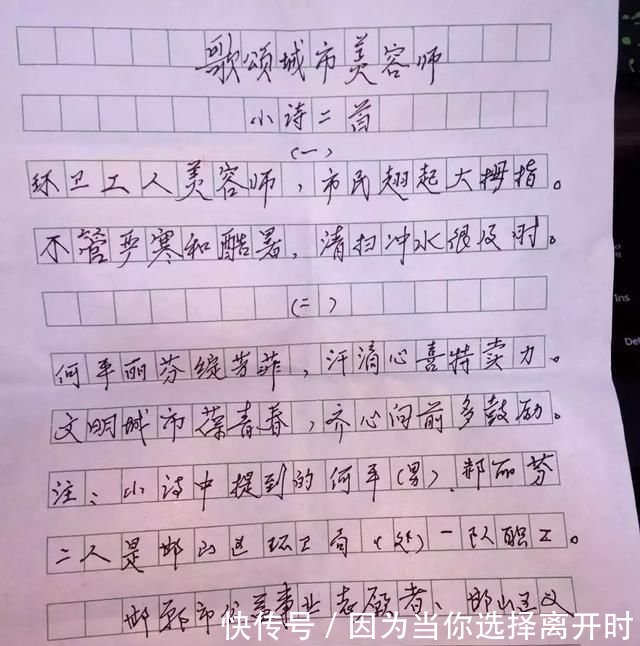 歌颂城市美容师
小诗二首
(一)
环卫工人美容师,市民翘起大拇指。
不管严寒和酷暑,清扫冲水很及时。
(二)
何平丽芬绽芳菲,汗滴心喜特卖力。
文明城市葆青春,齐心向前多鼓励。
注:小诗中提到的何平(男)、郝丽芬
二人是邯山区环卫局(处)一队职工。
邯郸市公益事业志愿者、邯山区义
快传号/因为当你选择离开时
Ins
Del